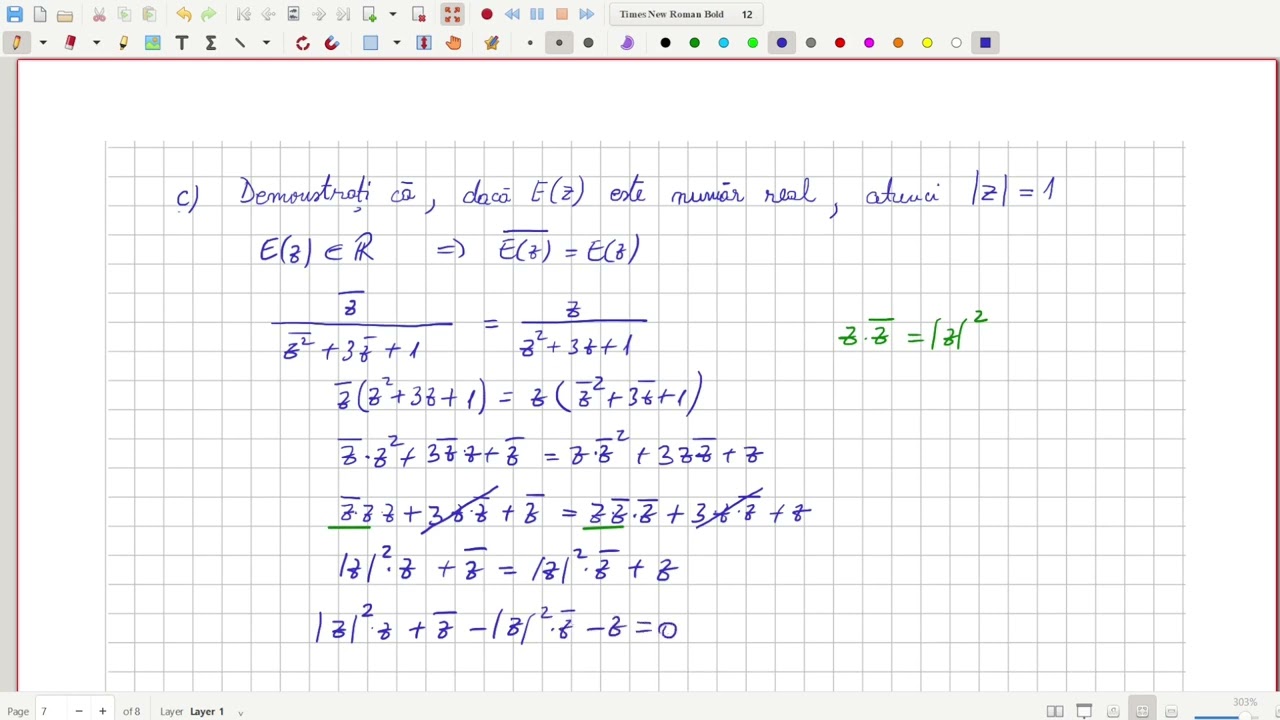 Times New Roman Bold 12
c) Demonstrați că, dacă E(z) este număr real, atunci |z| = 1
E(z) ∈ ℝ ⇒ \overline{E(z)} = E(z)
\frac{\overline{z}}{\overline{z}^2 + 3\overline{z} + 1} = \frac{z}{z^2 + 3z + 1}
z · \overline{z} = |z|^2
\overline{z}(z^2 + 3z + 1) = z(\overline{z}^2 + 3\overline{z} + 1)
\overline{z} · z^2 + 3\overline{z} · z + \overline{z} = z · \overline{z}^2 + 3z\overline{z} + z
\overline{z} · z · z + 3z · \overline{z} + \overline{z} = z\overline{z} · \overline{z} + 3z · \overline{z} + z
|z|^2 · z + \overline{z} = |z|^2 · \overline{z} + z
|z|^2 · z + \overline{z} − |z|^2 · \overline{z} − z = 0
Page 7 of 8 Layer Layer 1
303%